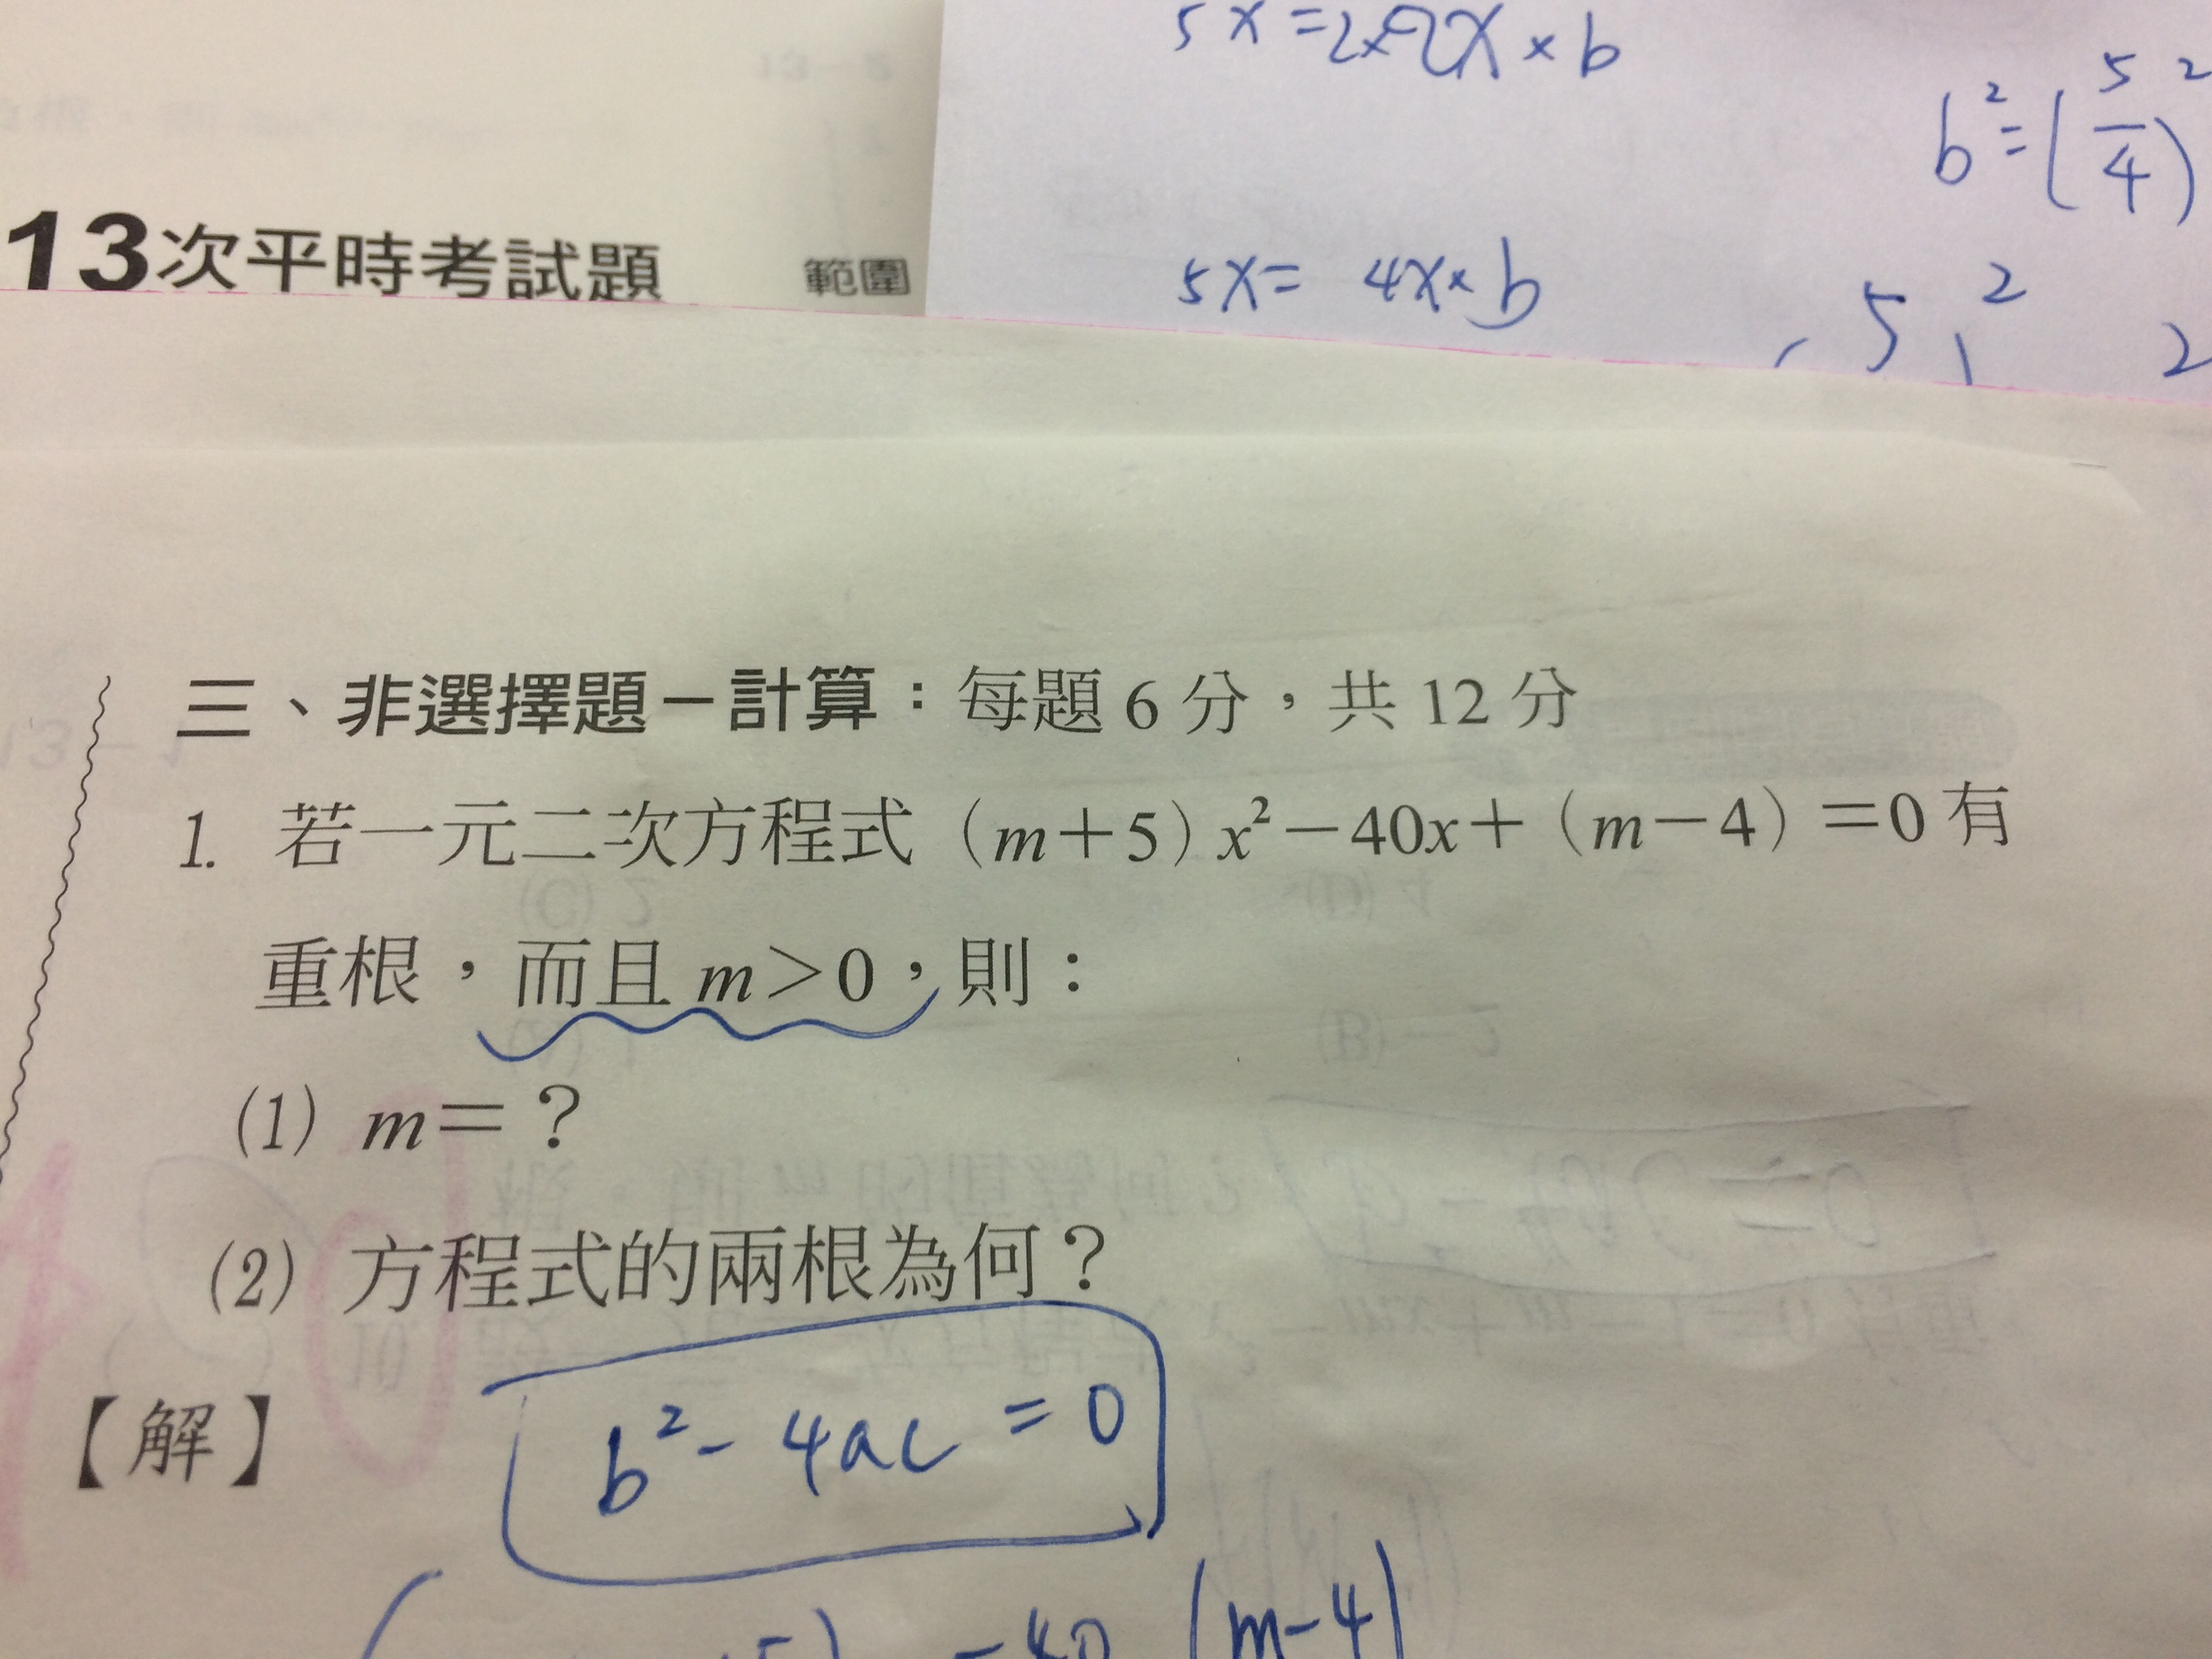 5x=2×2x×b
b²=(5/4)²
13次平時考試題 範圍
5x= 4x×b
5 2
2
三、非選擇題－計算：每題 6 分，共 12 分
1. 若一元二次方程式（m＋5）x²－40x＋（m－4）＝0 有
重根，而且 m＞0，則：
(1) m＝？
(2) 方程式的兩根為何？
【解】
b²- 4ac = 0
5) -40 (m-4)